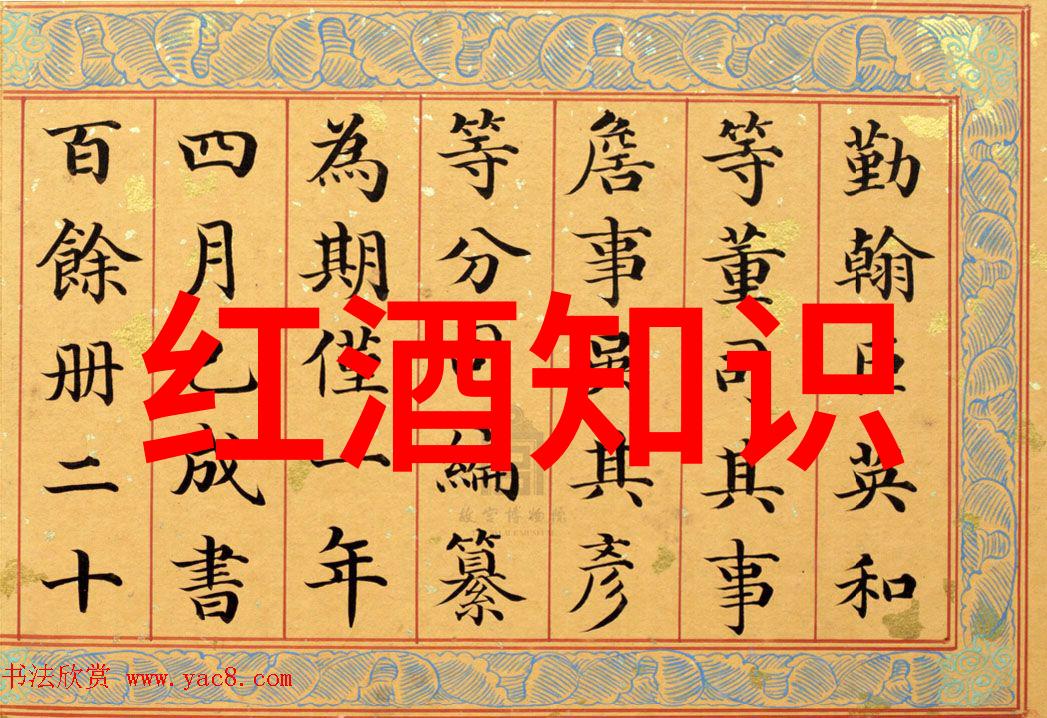 勤翰臣英和
等董司其事
詹事吳其彥
等分編纂
為期僅一年
四月已成書
百餘册二十
红酒知识
故宫博物院
书法欣赏 www.yac8.com